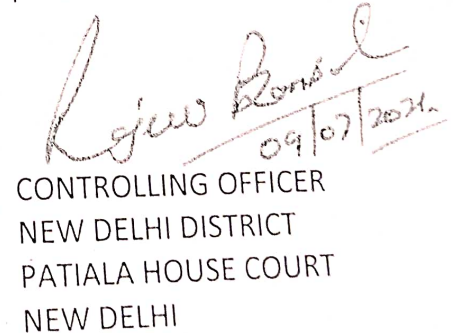 Rajeev Bansal
09/07/2021.
CONTROLLING OFFICER
NEW DELHI DISTRICT
PATIALA HOUSE COURT
NEW DELHI